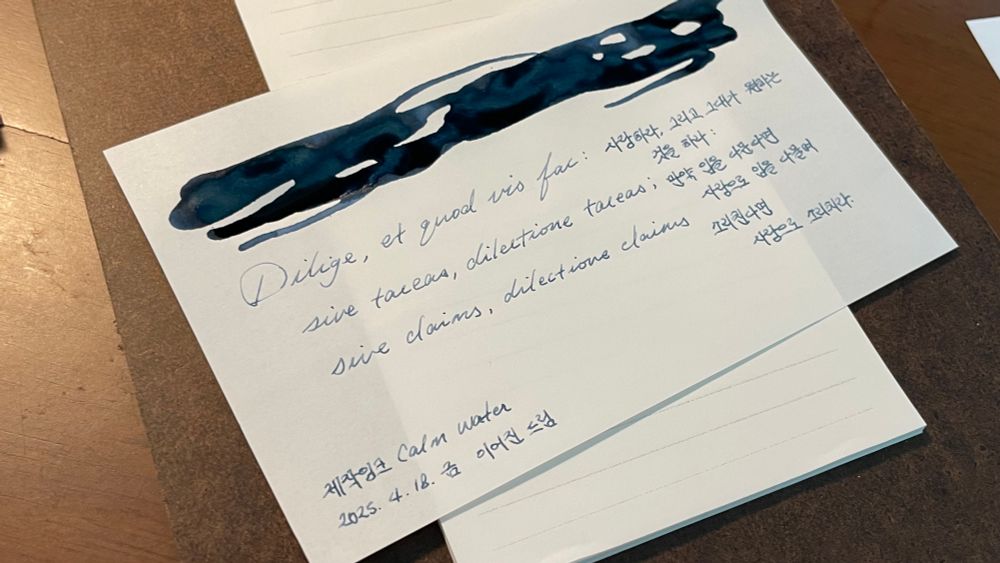 Dilige, et quod vis fac:
sive taceas, dilectione taceas;
sive claims, dilectione claims
사랑하라, 그리고 그대가 원하는
것을 하라:
만약 입을 다문다면
사랑으로 입을 다물며
소리친다면
사랑으로 소리치라.
제작잉크 Calm water
2025. 4. 18. 금 이어진 드림